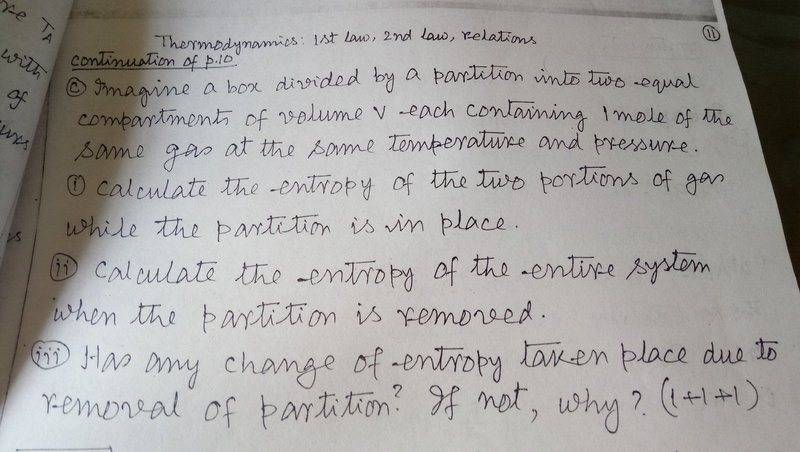 Thermodynamics: 1st law, 2nd law, relations
11
continuation of p.10
re TA
with
of
(c) Imagine a box divided by a partition into two equal
compartments of volume V each containing 1 mole of the
same gas at the same temperature and pressure.
(i) calculate the entropy of the two portions of gas
while the partition is in place.
(ii) calculate the entropy of the entire system
when the partition is removed.
(iii) Has any change of entropy taken place due to
removal of partition? If not, why? (1+1+1)